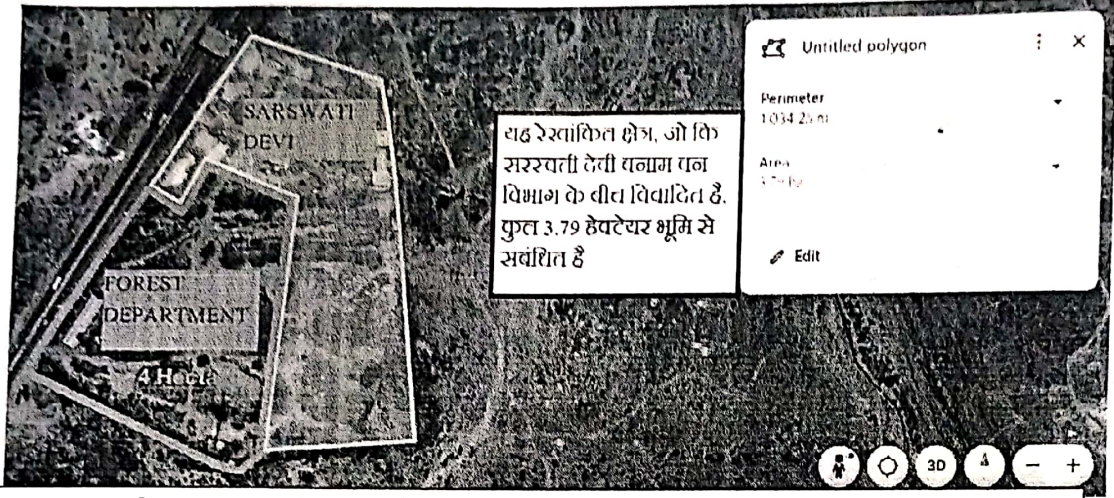 SARSWATI
DEVI
FOREST
DEPARTMENT
4 Hecta
यह रेखांकित क्षेत्र, जो कि
सरस्वती देवी बनाम वन
विभाग के बीच विवादित है.
कुल 3.79 हेक्टेयर भूमि से
सबंधित है
Untitled polygon
Perimeter
1,034.25 m
Area
3.79 ha
Edit
3D